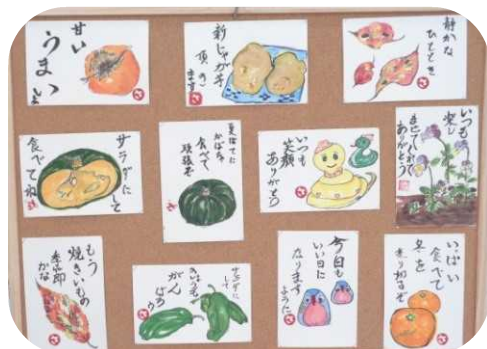 甘い
うまいよ
新じゃが芋
頂きます
静かな
ひととき
サラダにして
食べてね
夏ばてに
かぼちゃ
食べて
頑張る
いつも
笑顔
ありがとう
いつも
楽し
ませてくれて
ありがとう
もう
焼きいもの
季節
かな
サラダに
して
きょうも
がん
ばろう
今日も
いい日に
なります
ように
いっぱい
食べて
冬を
乗り切るぞ